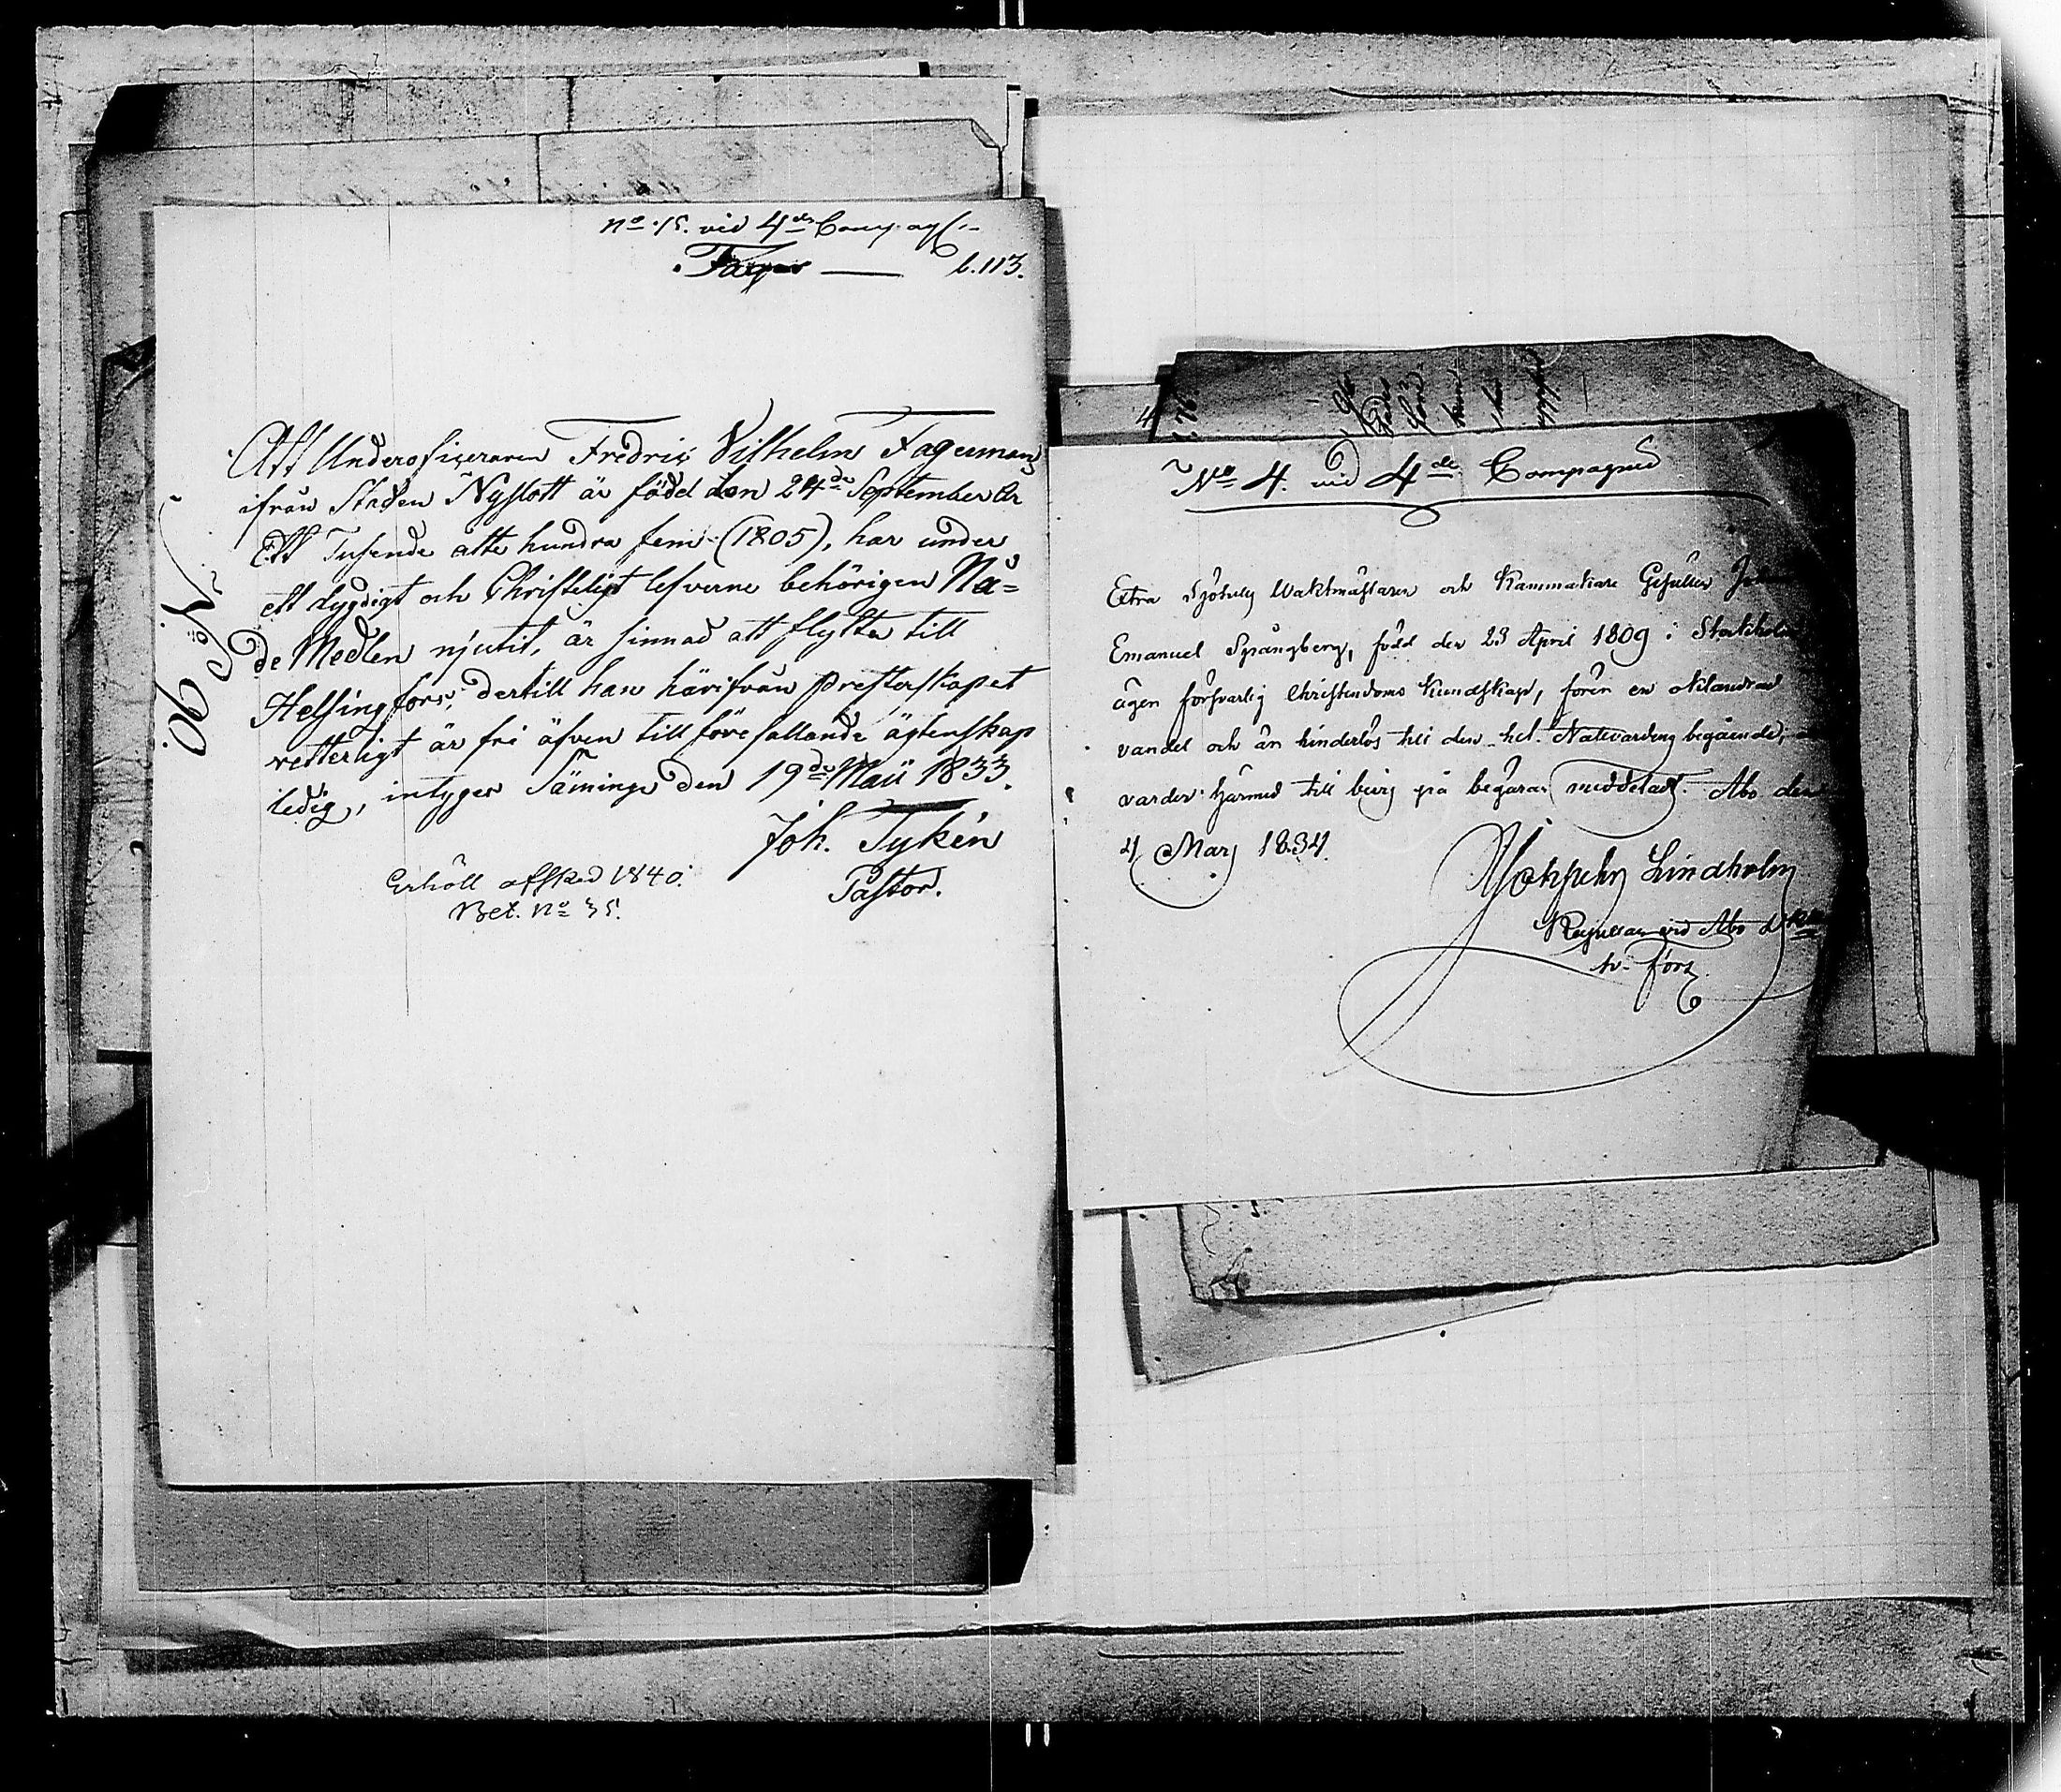 No. 15. vid 4de Comp.
b. 113.
Att Underoficeraren Fredric Vilhelm Fageuman
ifrån Staden Nyslott är född den 24de September År
Ett Tusende åtta hundra fem (1805), har under
ett dygdigt och Christeligt lefverne behörigen Nå=
de Medlen njutit, är sinnad att flytta till
Helsingfors; dertill han härifrån presterskapet
retterligt är fri äfven till förefallande ägtenskap
ledig, intyger Säminge den 19de Maii 1833.
Joh. Tykén
Pastor.
Erhöll afsked 1840.
Bet. No 35.
No 90
No 4. vid 4de Compagnie
Extra Waktmästaren och Kammakare Gesällen
Emanuel Spångberg, född den 23 April 1809 i Stockholm
ägen försvarlig Christendoms Kundskap, förer en oklandrad
vandel och är hinderlös till den hel. Nattvardens begående,
varder härmed till bevis på begäran meddeladt. Åbo den
4 Marj 1834.
Lindholm
vid Åbo
förs.